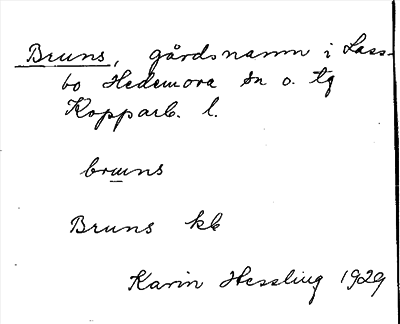 Bruns, gårdsnamn i Lass-
bo Hedemora sn o. tg
Kopparb. l.
bruns
Bruns kb
Karin Hessling 1929